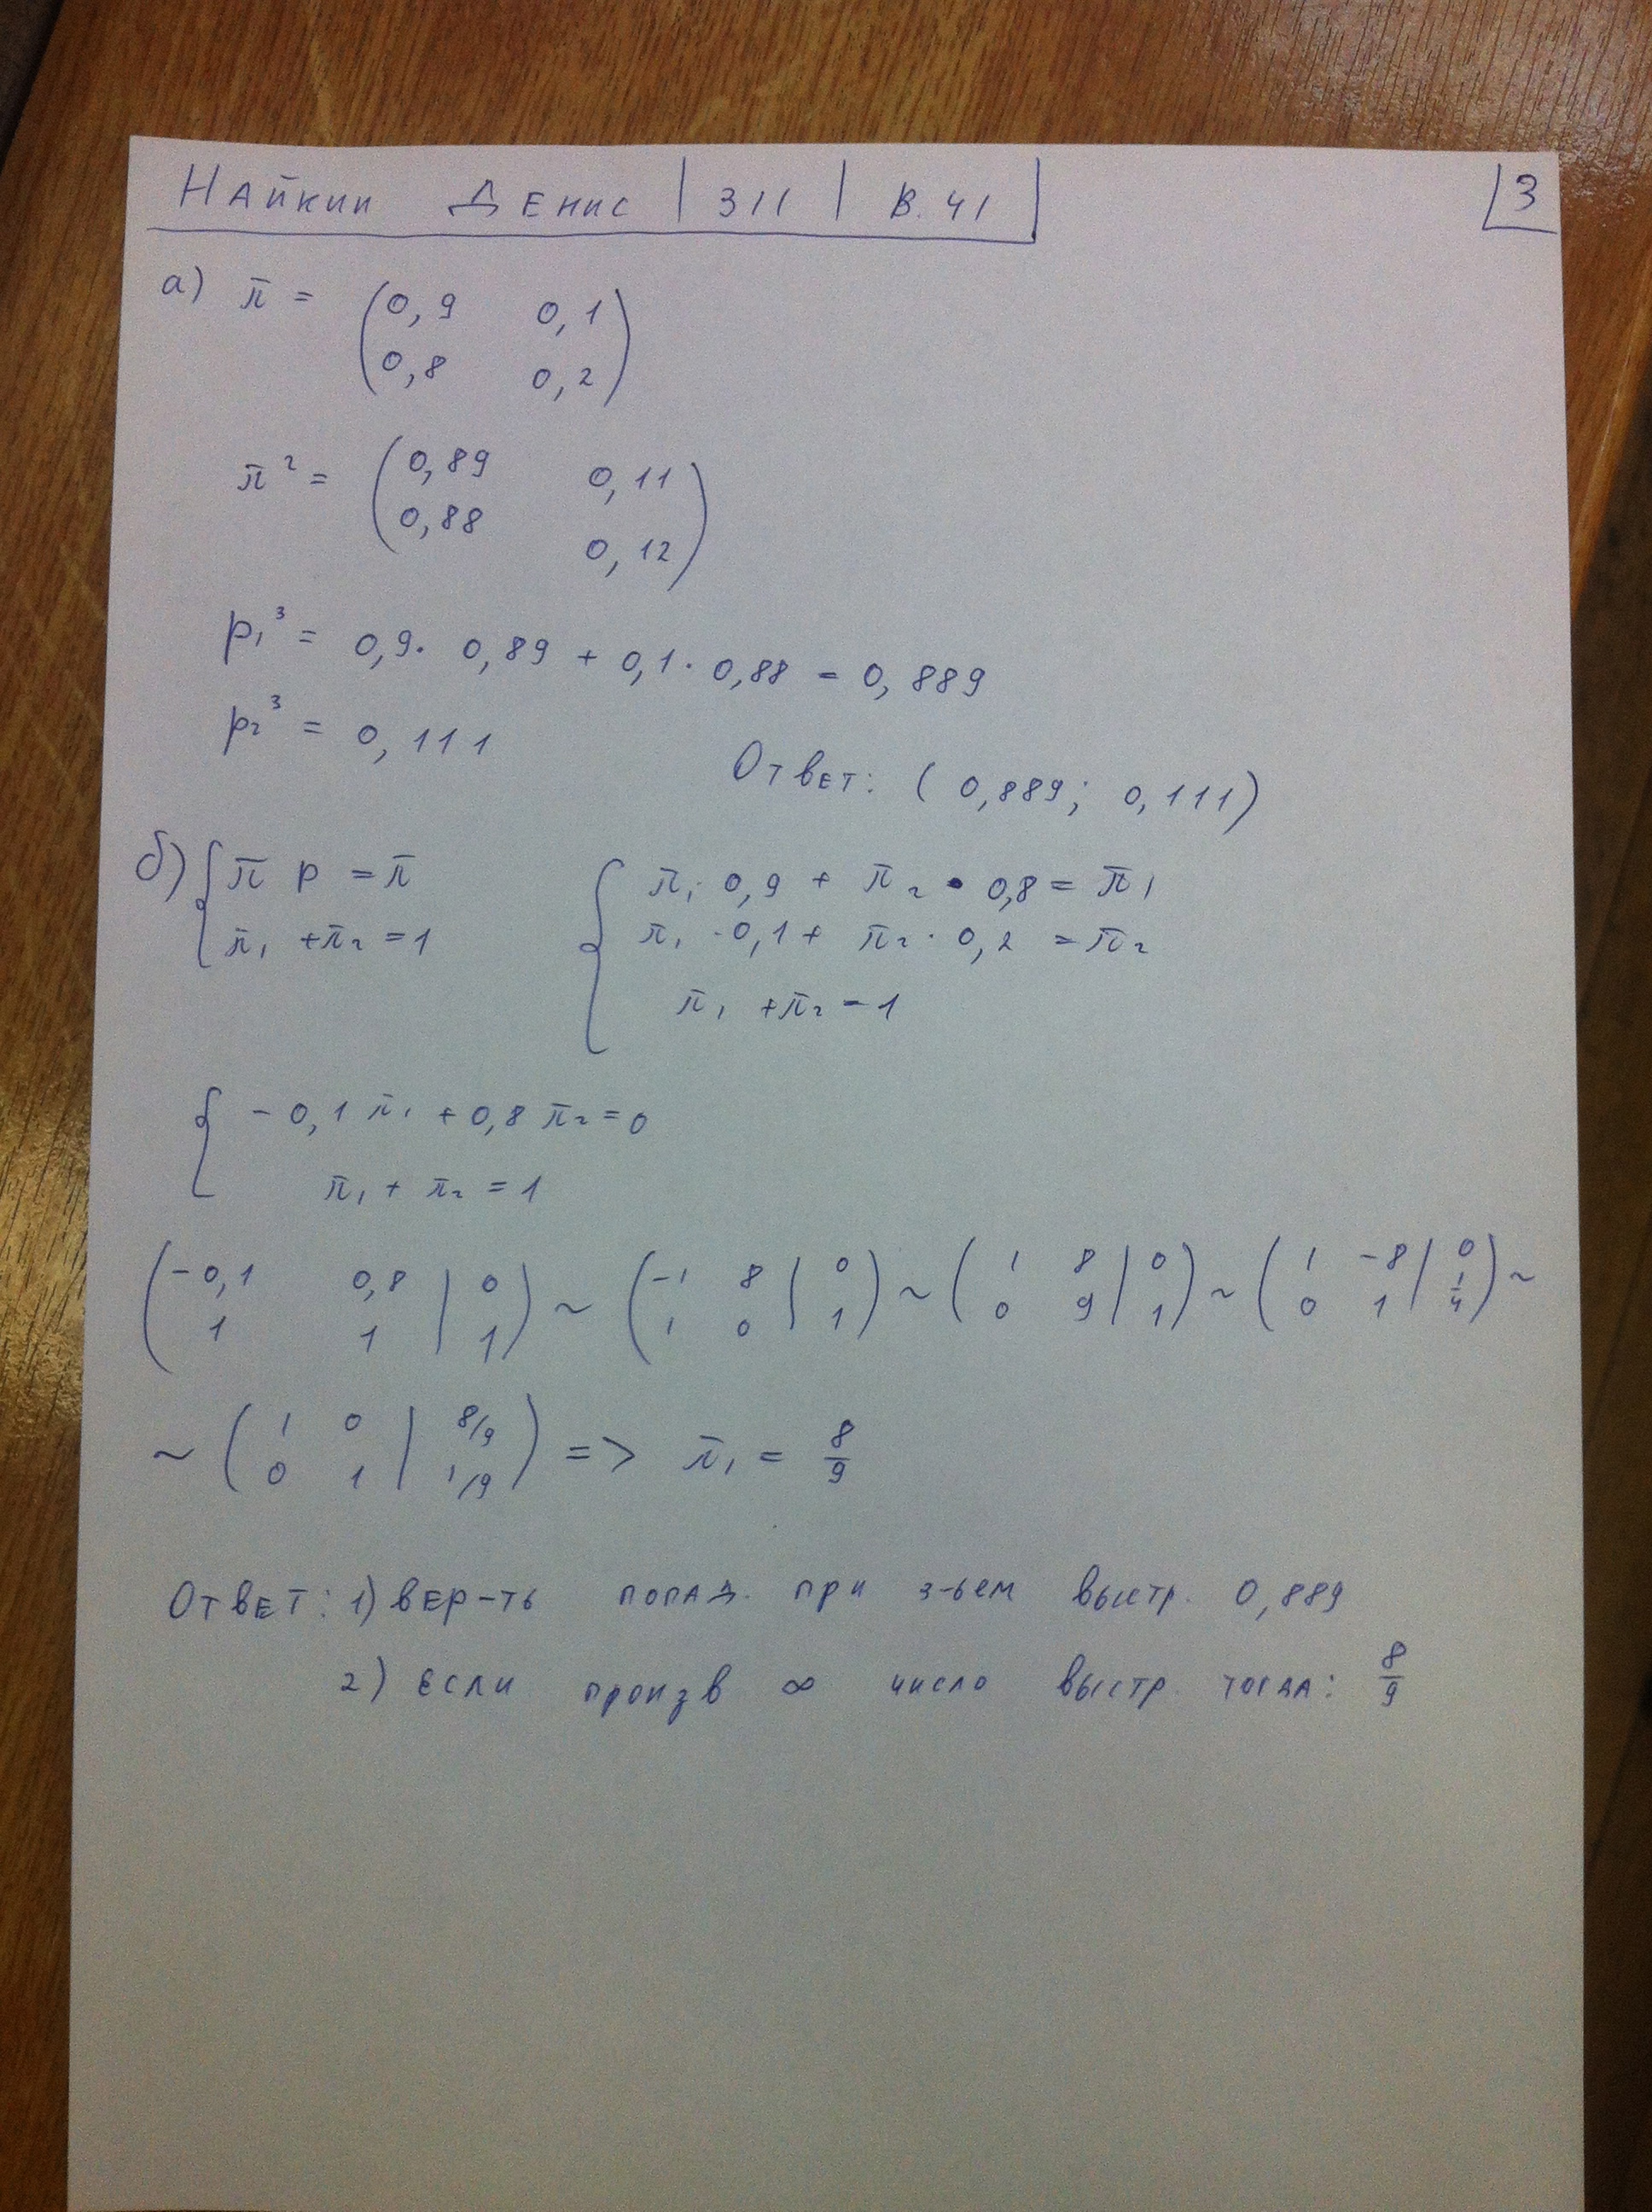 Найкин Денис | 311 | В. 41
3
а) π = (0,9 0,1
0,8 0,2)
π² = (0,89 0,11
0,88 0,12)
p₁³ = 0,9 · 0,89 + 0,1 · 0,88 = 0,889
p₂³ = 0,111
Ответ: (0,889; 0,111)
б) { π p = π { π₁ · 0,9 + π₂ · 0,8 = π₁
π₁ + π₂ = 1 π₁ · 0,1 + π₂ · 0,2 = π₂
π₁ + π₂ = 1
{ - 0,1 π₁ + 0,8 π₂ = 0
π₁ + π₂ = 1
(-0,1 0,8 | 0) ~ (-1 8 | 0) ~ (1 8 | 0) ~ (1 -8 | 0) ~
(1 1 | 1) (1 0 | 1) (0 9 | 1) (0 1 | 1/4)
~ (1 0 | 8/9) => π₁ = 8/9
(0 1 | 1/9)
Ответ: 1) вер-ть попад. при 3-ьем выстр. 0,889
2) если произв ∞ число выстр. тогда: 8/9